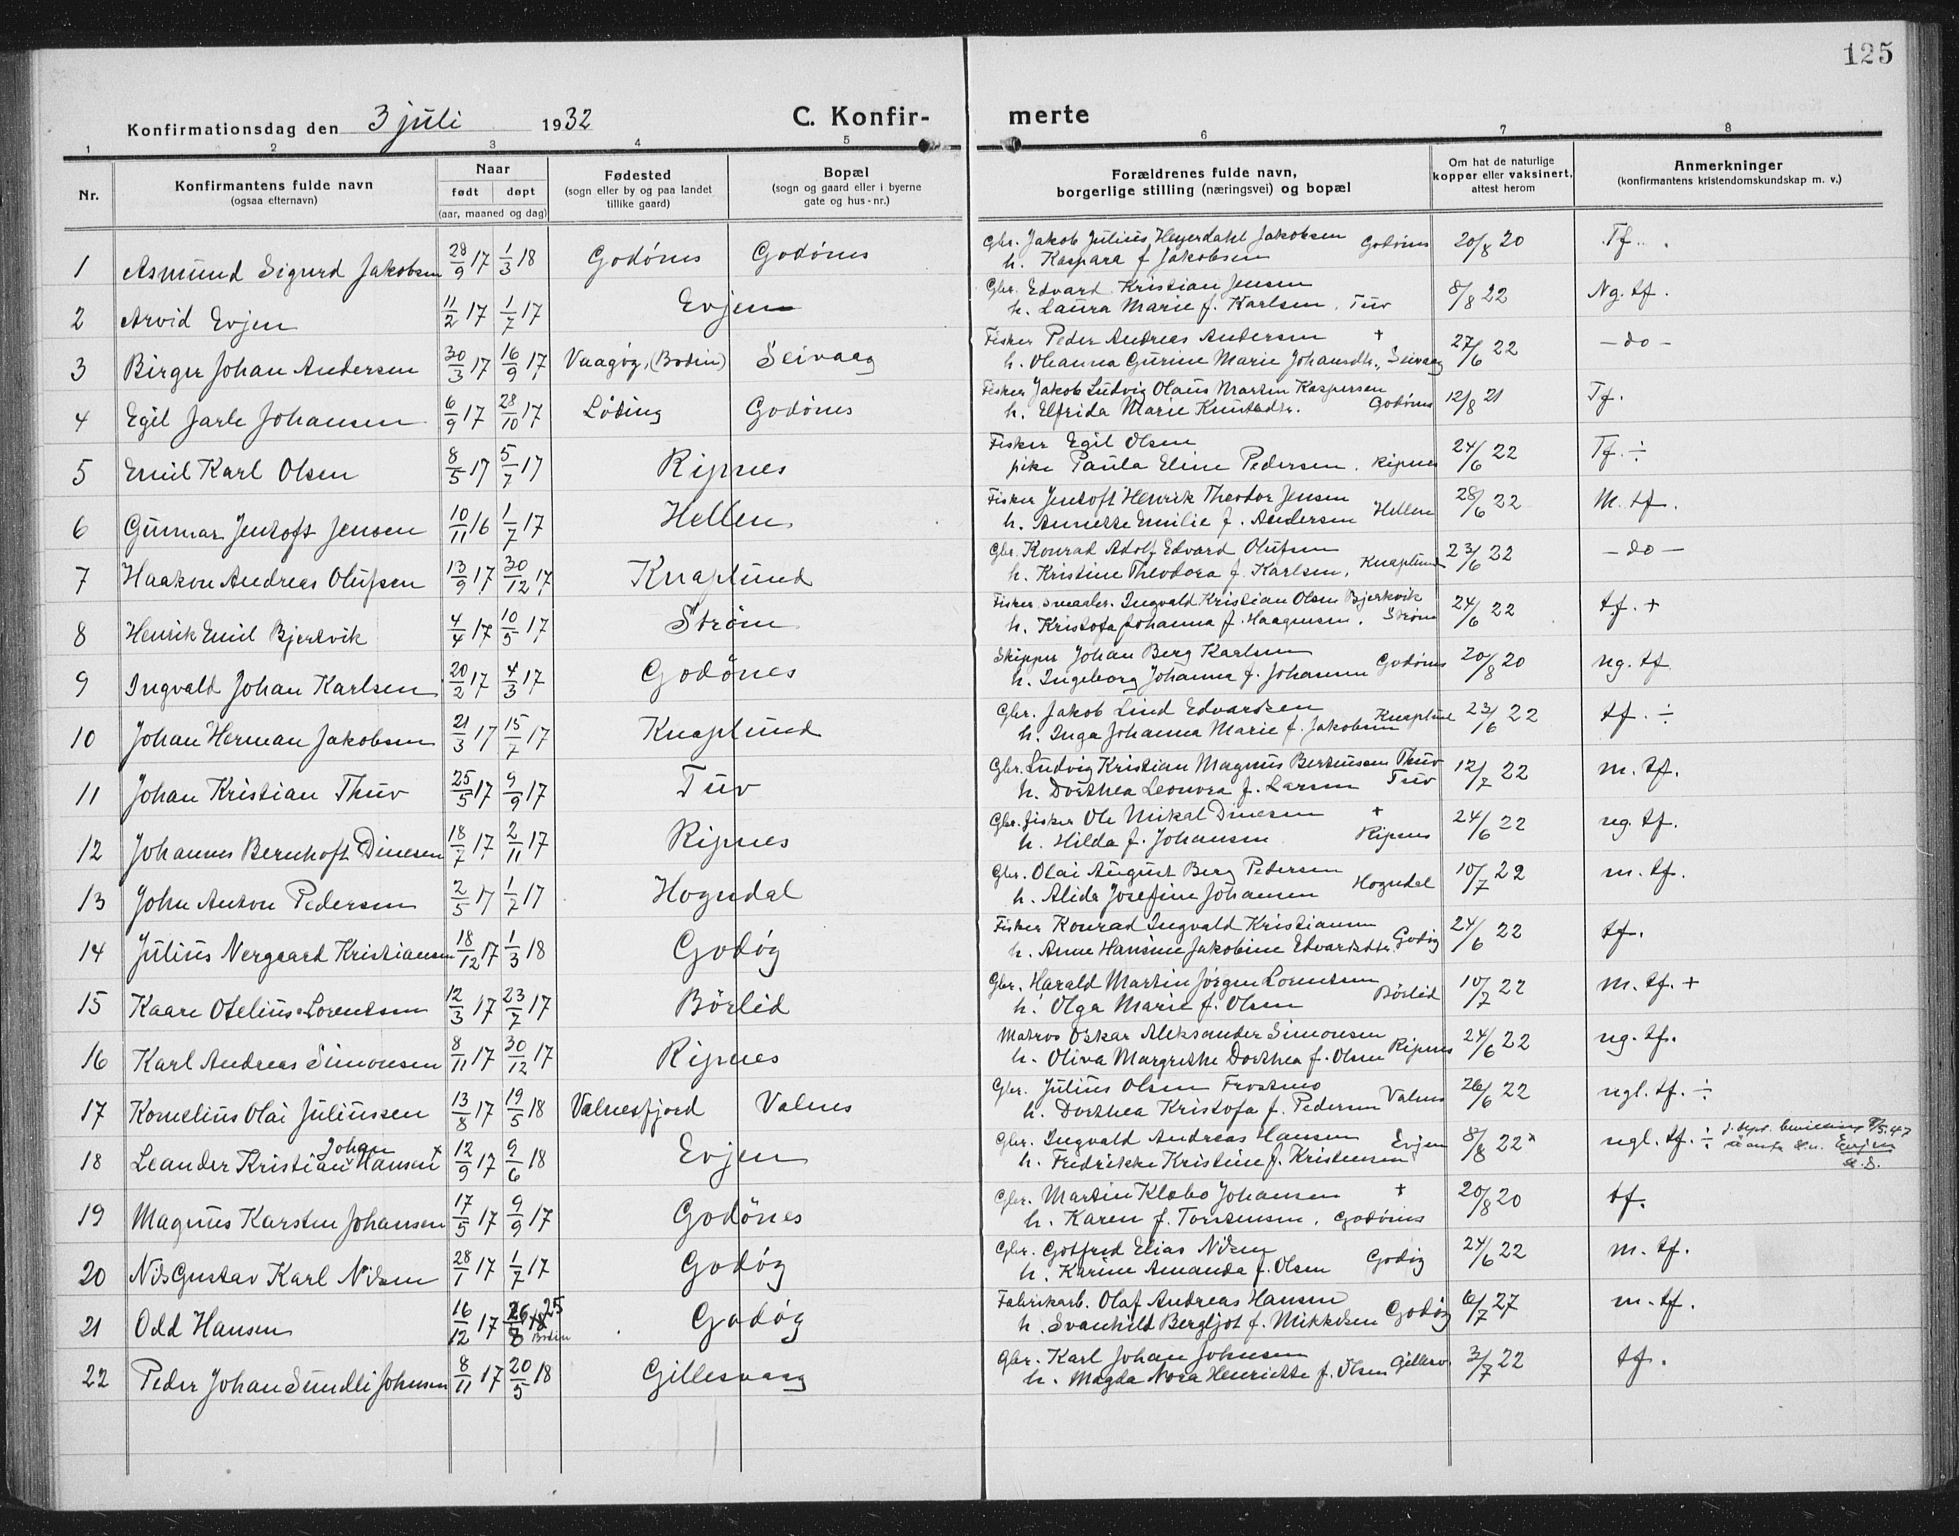 125
Konfirmationsdag den 3 juli 1932 C. Konfir- merte
1 2 3 4 5 6 7 8
Nr. Konfirmantens fulde navn (ogsaa efternavn) Naar født døpt (aar, maaned og dag) Fødested (sogn eller by og paa landet tillike gaard) Bopæl (sogn og gaard eller i byerne gate og hus-nr.) Forældrenes fulde navn, borgerlige stilling (næringsvei) og bopæl Om hat de naturlige kopper eller vaksinert, attest herom Anmerkninger (konfirmantens kristendomskundskap m. v.)
1 Asmund Sigurd Jakobsen 28/9 17 1/3 18 Godønes Godønes Gbr. Jakob Julius Heyerdahl Jakobsen Godønes 20/8 20 Tf.
h. Kaspara f Jakobsen
2 Arvid Evjen 11/2 17 1/7 17 Evjen Gbr. Edvard Kristian Jensen 8/8 22 Ng. tf.
h. Laura Marie f. Karlsen, Tuv
3 Birger Johan Andersen 30/3 17 16/9 17 Vaagøy, (Bodin) Seivaag Fisker Peder Andreas Andersen + 27/6 22 - do -
h. Oleanna Gurine Marie Johansdtr., Seivaag
4 Egil Jarle Johansen 6/9 17 28/10 17 Løding Godønes Fisker Jakob Ludvig Olaus Martin Kaspersen 12/8 21 Tf.
h. Elfrida Marie Knutsdtr. Godønes
5 Emil Karl Olsen 8/5 17 5/7 17 Ripnes Fisker Egil Olsen 24/6 22 Tf. ÷
pike Paula Eline Pedersen, Ripnes
6 Gunnar Jentoft Jensen 10/11 16 1/7 17 Hellen Fisker Jentoft Henrik Theodor Jensen 28/6 22 M. tf.
h. Annette Emilie f. Andersen Hellen
7 Haakon Andreas Olufsen 13/9 17 30/12 17 Knaplund Gbr. Konrad Adolf Edvard Olufsen 23/6 22 - do -
h. Kristine Theodora f. Karlsen, Knaplund
8 Henrik Emil Bjerkvik 4/4 17 10/5 17 Strøm Fisker, smaabr. Ingvald Kristian Olsen Bjerkvik 24/6 22 tf. +
h. Kristofa Johanna f. Haagensen, Strøm
9 Ingvald Johan Karlsen 20/2 17 4/3 17 Godønes Skipper Johan Berg Karlsen 20/8 20 ng. tf.
h. Ingeborg Johanna f. Johansen Godønes
10 Johan Herman Jakobsen 21/3 17 15/7 17 Knaplund Gbr. Jakob Lind Edvardsen 23/6 22 tf. ÷
h. Inga Johanna Marie f. Jakobsen Knaplund
11 Johan Kristian Thuv 25/5 17 9/9 17 Tuv Gbr. Ludvig Kristian Magnus Berteussen Thuv 12/7 22 m. tf.
h. Dorthea Leonora f. Larsen Tuv
12 Johannes Bernhoft Dinesen 18/7 17 2/11 17 Ripnes Gbr. fisker Ole Mikal Dinesen + 24/6 22 ng. tf.
h. Hilda f. Johansen Ripnes
13 John Anton Pedersen 2/5 17 1/7 17 Hogndal Gbr. Olai August Berg Pedersen 10/7 22 m. tf.
h. Alida Josefine Johansen Hogndal
14 Julius Nergaard Kristiansen 18/12 17 1/3 18 Godøy Fisker Konrad Ingvald Kristiansen 24/6 22 tf.
h. Anne Hansine Jakobine Edvardsdtr. Godøy
15 Kaare Otelius Lorentsen 12/3 17 23/7 17 Børlid Gbr. Harald Martin Jørgen Lorentsen 10/7 22 m. tf. +
h. Olga Marie f. Olsen Børlid
16 Karl Andreas Simonsen 8/11 17 30/12 17 Ripnes Matros Oskar Aleksander Simonsen 24/6 22 ng. tf.
h. Oliva Margrethe Dorthea f. Olsen Ripnes
17 Kornelius Olai Juliussen 13/8 17 19/5 18 Valnesfjord Valnes Gbr. Julius Olsen Frostmo 26/6 22 ngl. tf. ÷
h. Dorthea Kristofa f. Pedersen Valnes
18 Leander Kristian Johan Hansen x 12/9 17 9/6 18 Evjen Gbr. Ingvald Andreas Hansen Evjen 8/8 22 x ngl. tf. ÷ J. dept. bevilling 9/5.47
h. Fredrikke Kristine f. Kristensen Evjen
19 Magnus Karsten Johansen 17/5 17 9/9 17 Godønes Gbr. Martin Klæbo Johansen + 20/8 20 tf.
h. Karen f. Torstensen, Godønes
20 Nils Gustav Karl Nilsen 28/1 17 1/7 17 Godøy Gbr. Gotfred Elias Nilsen 24/6 22 m. tf.
h. Karine Amanda f. Olsen Godøy
21 Odd Hansen 16/12 17 25 Bodin Godøy Fabrikarb. Olaf Andreas Hansen 6/7 27 m. tf.
h. Svanhild Bergljot f. Mikkelsen Godøy
22 Peder Johan Sundli Johnsen 8/11 17 20/5 18 Gillesvaag Gbr. Karl Johan Johnsen 3/7 22 tf.
h. Magda Nora Henriette f. Olsen Gillesv.